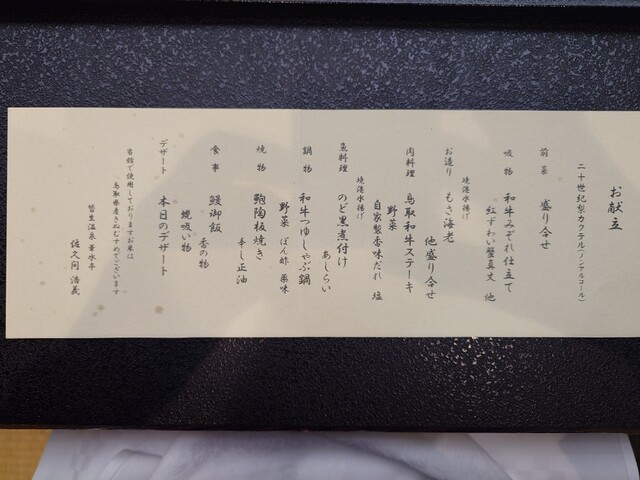 お献立
二十世紀梨カクテル(ノンアルコール)
前菜 盛り合せ
吸物 和牛みぞれ仕立て
紅ずわい蟹真丈 他
境港水揚げ
お造り もさ海老
他盛り合せ
肉料理 鳥取和牛ステーキ
野菜
自家製香味だれ 塩
境港水揚げ
魚料理 のど黒煮付け
あしらい
鍋物 和牛つゆしゃぶ鍋
野菜 ぽん酢 薬味
焼物 鮑陶板焼き
手し正油
食事 鰻御飯
香の物
蜆吸い物
デザート 本日のデザート
当館で使用しておりますお米は
鳥取県産きぬむすめでございます
皆生温泉 華水亭
佐久間 浩義